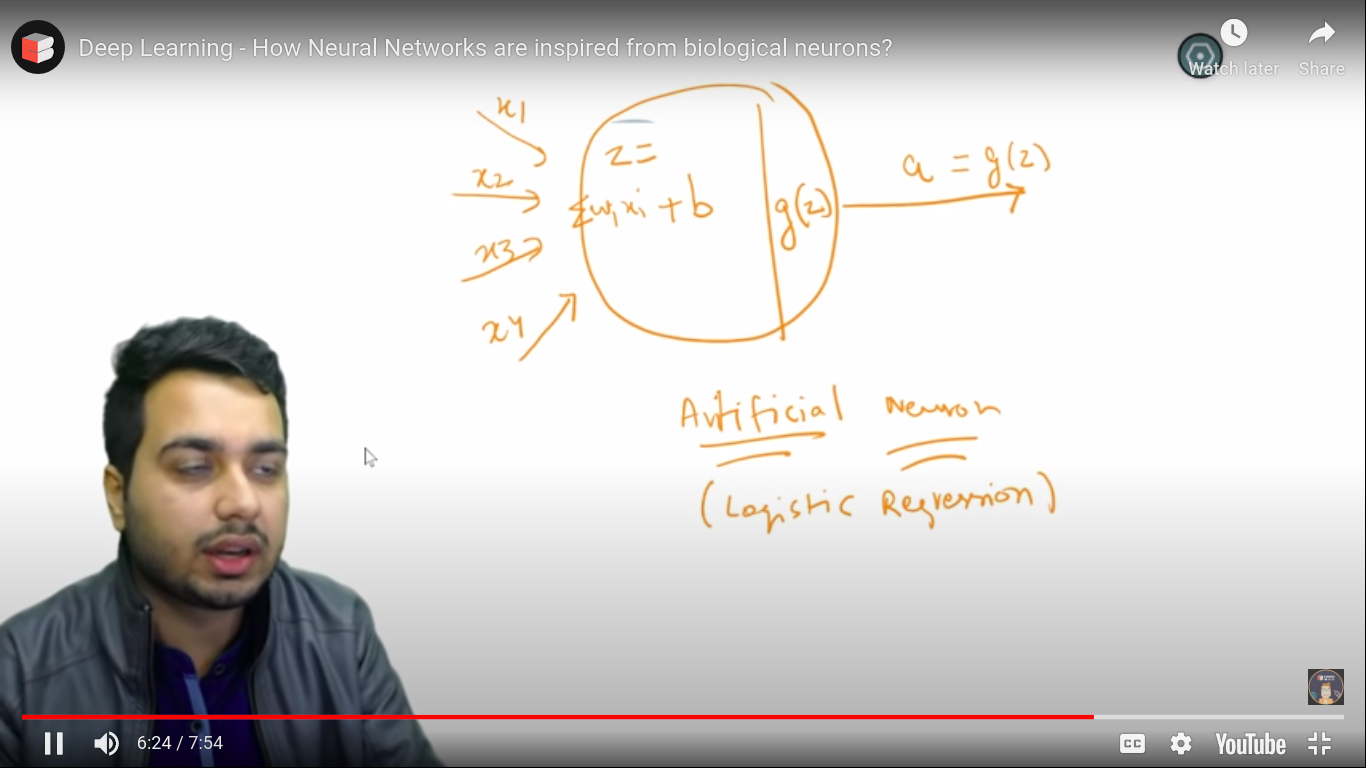 Deep Learning - How Neural Networks are inspired from biological neurons?
Watch later
Share
x1
x2
x3
x4
z=
Σwixi + b
g(z)
a = g(z)
Artificial Neuron
(Logistic Regression)
6:24 / 7:54
CC
YouTube